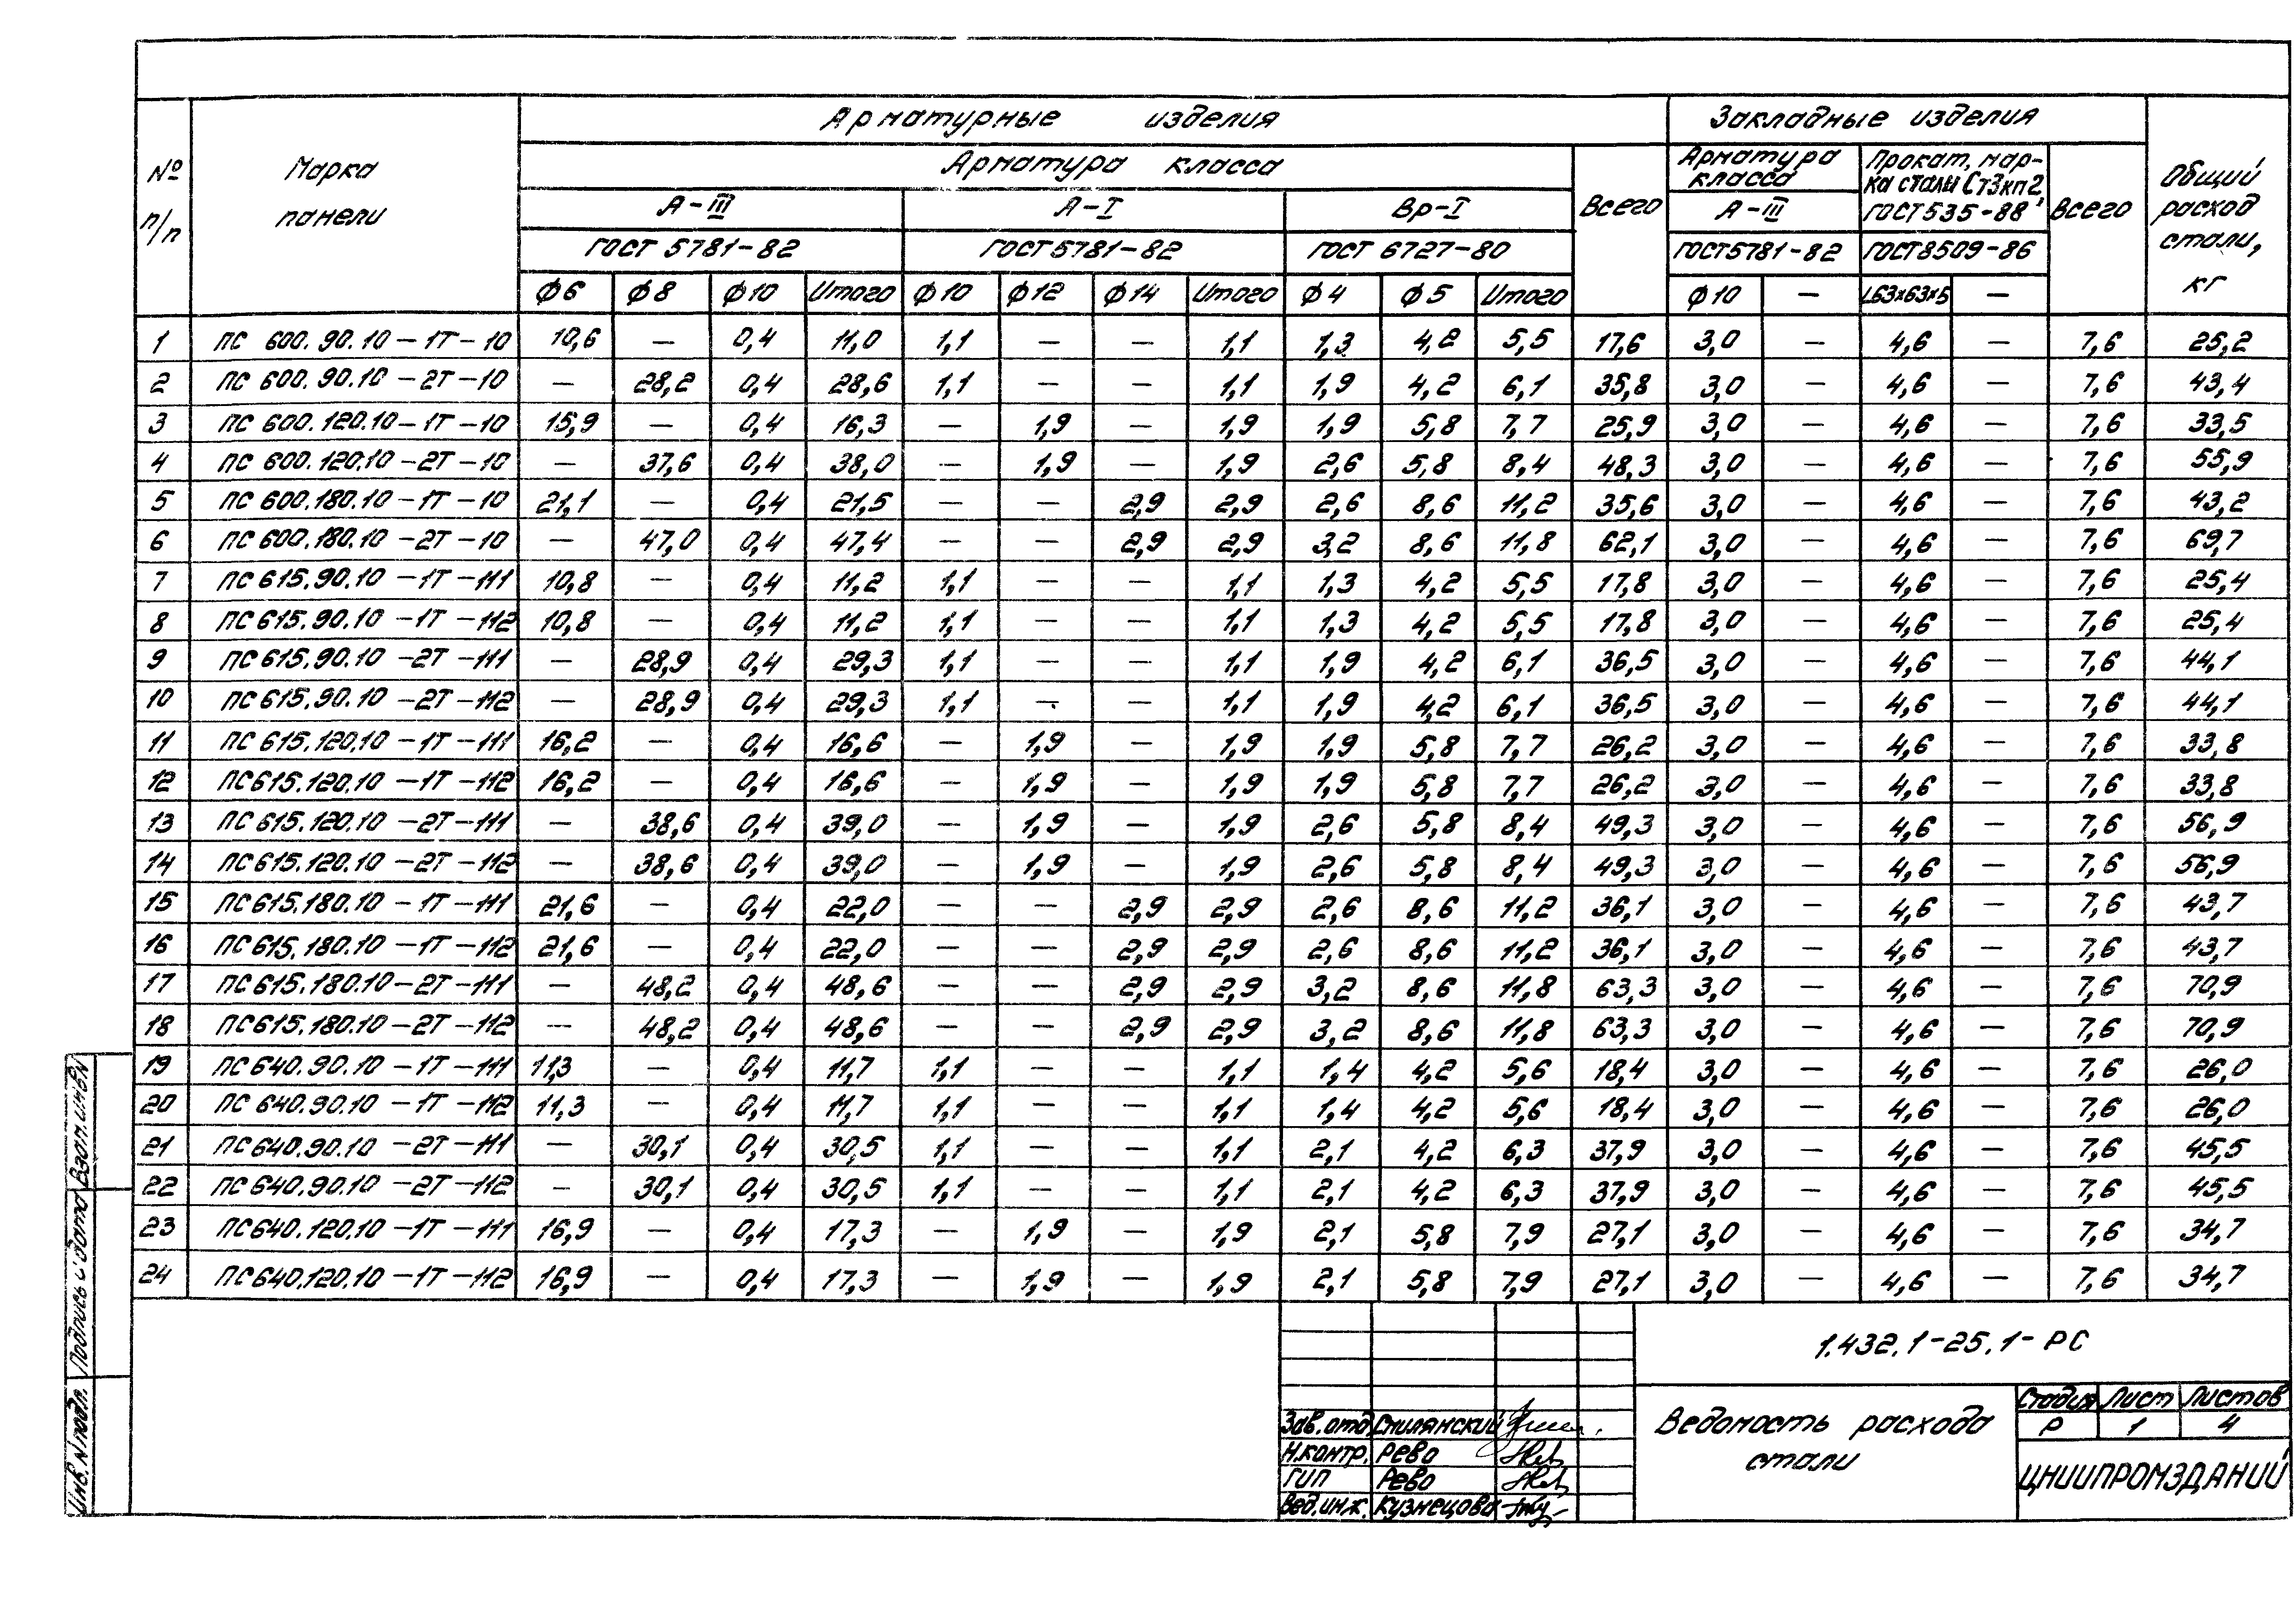 № п/п Марка панели Арматурные изделия Закладные изделия Общий расход стали, кг
Арматура класса Всего Арматура класса Прокат, марка стали Ст3кп2, ГОСТ 535-88 Всего
А-III А-I Вр-I А-III
ГОСТ 5781-82 ГОСТ 5781-82 ГОСТ 6727-80 ГОСТ 5781-82 ГОСТ 8509-86
ф6 ф8 ф10 Итого ф10 ф12 ф14 Итого ф4 ф5 Итого ф10 — L63x63x5 —
1 ПС 600.90.10-1Т-10 10,6 — 0,4 11,0 1,1 — — 1,1 1,3 4,2 5,5 17,6 3,0 — 4,6 — 7,6 25,2
2 ПС 600.90.10-2Т-10 — 28,2 0,4 28,6 1,1 — — 1,1 1,9 4,2 6,1 35,8 3,0 — 4,6 — 7,6 43,4
3 ПС 600.120.10-1Т-10 15,9 — 0,4 16,3 — 1,9 — 1,9 1,9 5,8 7,7 25,9 3,0 — 4,6 — 7,6 33,5
4 ПС 600.120.10-2Т-10 — 37,6 0,4 38,0 — 1,9 — 1,9 2,6 5,8 8,4 48,3 3,0 — 4,6 — 7,6 55,9
5 ПС 600.180.10-1Т-10 21,1 — 0,4 21,5 — — 2,9 2,9 2,6 8,6 11,2 35,6 3,0 — 4,6 — 7,6 43,2
6 ПС 600.180.10-2Т-10 — 47,0 0,4 47,4 — — 2,9 2,9 3,2 8,6 11,8 62,1 3,0 — 4,6 — 7,6 69,7
7 ПС 615.90.10-1Т-111 10,8 — 0,4 11,2 1,1 — — 1,1 1,3 4,2 5,5 17,8 3,0 — 4,6 — 7,6 25,4
8 ПС 615.90.10-1Т-112 10,8 — 0,4 11,2 1,1 — — 1,1 1,3 4,2 5,5 17,8 3,0 — 4,6 — 7,6 25,4
9 ПС 615.90.10-2Т-111 — 28,9 0,4 29,3 1,1 — — 1,1 1,9 4,2 6,1 36,5 3,0 — 4,6 — 7,6 44,1
10 ПС 615.90.10-2Т-112 — 28,9 0,4 29,3 1,1 — — 1,1 1,9 4,2 6,1 36,5 3,0 — 4,6 — 7,6 44,1
11 ПС 615.120.10-1Т-111 16,2 — 0,4 16,6 — 1,9 — 1,9 1,9 5,8 7,7 26,2 3,0 — 4,6 — 7,6 33,8
12 ПС 615.120.10-1Т-112 16,2 — 0,4 16,6 — 1,9 — 1,9 1,9 5,8 7,7 26,2 3,0 — 4,6 — 7,6 33,8
13 ПС 615.120.10-2Т-111 — 38,6 0,4 39,0 — 1,9 — 1,9 2,6 5,8 8,4 49,3 3,0 — 4,6 — 7,6 56,9
14 ПС 615.120.10-2Т-112 — 38,6 0,4 39,0 — 1,9 — 1,9 2,6 5,8 8,4 49,3 3,0 — 4,6 — 7,6 56,9
15 ПС 615.180.10-1Т-111 21,6 — 0,4 22,0 — — 2,9 2,9 2,6 8,6 11,2 36,1 3,0 — 4,6 — 7,6 43,7
16 ПС 615.180.10-1Т-112 21,6 — 0,4 22,0 — — 2,9 2,9 2,6 8,6 11,2 36,1 3,0 — 4,6 — 7,6 43,7
17 ПС 615.180.10-2Т-111 — 48,2 0,4 48,6 — — 2,9 2,9 3,2 8,6 11,8 63,3 3,0 — 4,6 — 7,6 70,9
18 ПС 615.180.10-2Т-112 — 48,2 0,4 48,6 — — 2,9 2,9 3,2 8,6 11,8 63,3 3,0 — 4,6 — 7,6 70,9
19 ПС 640.90.10-1Т-111 11,3 — 0,4 11,7 1,1 — — 1,1 1,4 4,2 5,6 18,4 3,0 — 4,6 — 7,6 26,0
20 ПС 640.90.10-1Т-112 11,3 — 0,4 11,7 1,1 — — 1,1 1,4 4,2 5,6 18,4 3,0 — 4,6 — 7,6 26,0
21 ПС 640.90.10-2Т-111 — 30,1 0,4 30,5 1,1 — — 1,1 2,1 4,2 6,3 37,9 3,0 — 4,6 — 7,6 45,5
22 ПС 640.90.10-2Т-112 — 30,1 0,4 30,5 1,1 — — 1,1 2,1 4,2 6,3 37,9 3,0 — 4,6 — 7,6 45,5
23 ПС 640.120.10-1Т-111 16,9 — 0,4 17,3 — 1,9 — 1,9 2,1 5,8 7,9 27,1 3,0 — 4,6 — 7,6 34,7
24 ПС 640.120.10-1Т-112 16,9 — 0,4 17,3 — 1,9 — 1,9 2,1 5,8 7,9 27,1 3,0 — 4,6 — 7,6 34,7
Взам.инв.N
Подпись и дата
Инв. N подл.
1.432.1-25.1-РС
Зав. отд. Смилянский
Н.контр. Рево
ГИП Рево
Вед.инж. Кузнецова
Ведомость расхода стали
Стадия Лист Листов
Р 1 4
ЦНИИПРОМЗДАНИЙ